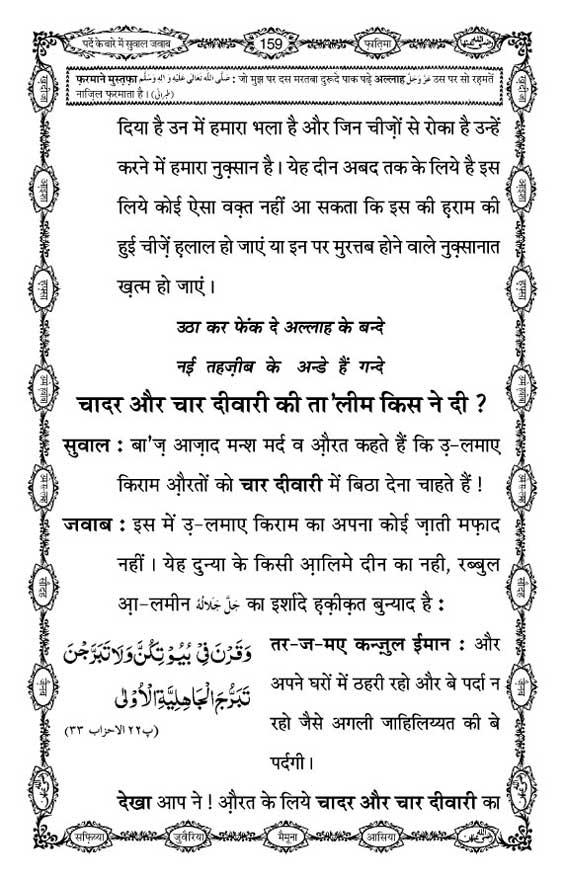 पर्दे के बारे में सुवाल जवाब
159
फ़ातिमा
फ़रमाने मुस्तफ़ा صَلَّى اللهُ تَعَالٰى عَلَيْهِ وَاٰلِهٖ وَسَلَّم : जो मुझ पर दस मरतबा दुरूदे पाक पढ़े अल्लाह عَزَّوَجَلَّ उस पर सो रहमतें
नाज़िल फ़रमाता है। (طبرانی)
दिया है उन में हमारा भला है और जिन चीज़ों से रोका है उन्हें
करने में हमारा नुक़्सान है। येह दीन अबद तक के लिये है इस
लिये कोई ऐसा वक़्त नहीं आ सकता कि इस की ह़राम की
हुई चीज़ें ह़लाल हो जाएं या इन पर मुरत्तब होने वाले नुक़्सानात
ख़त्म हो जाएं।
उठा कर फेंक दे अल्लाह के बन्दे
नई तहज़ीब के अन्डे हैं गन्दे
चादर और चार दीवारी की ता'लीम किस ने दी ?
सुवाल : बा'ज़ आज़ाद मन्श मर्द व औ़रत कहते हैं कि उ़-लमाए
किराम औ़रतों को चार दीवारी में बिठा देना चाहते हैं !
जवाब : इस में उ़-लमाए किराम का अपना कोई ज़ाती मफ़ाद
नहीं। येह दुन्या के किसी आ़लिमे दीन का नही, रब्बुल
आ़-लमीन جَلَّ جَلَالُهٗ का इर्शादे ह़क़ीक़त बुन्याद है :
وَقَرْنَ فِیْ بُیُوْتِكُنَّ وَلَا تَبَرَّجْنَ
تَبَرُّجَ الْجَاهِلِیَّةِ الْاُوْلٰى
(پ۲۲ الاحزاب ۳۳)
तर-ज-मए कन्ज़ुल ईमान : और
अपने घरों में ठहरी रहो और बे पर्दा न
रहो जैसे अगली जाहिलिय्यत की बे
पर्दगी।
देखा आप ने ! औ़रत के लिये चादर और चार दीवारी का
सफ़िय्या
जुवैरिया
मैमूना
आसिया